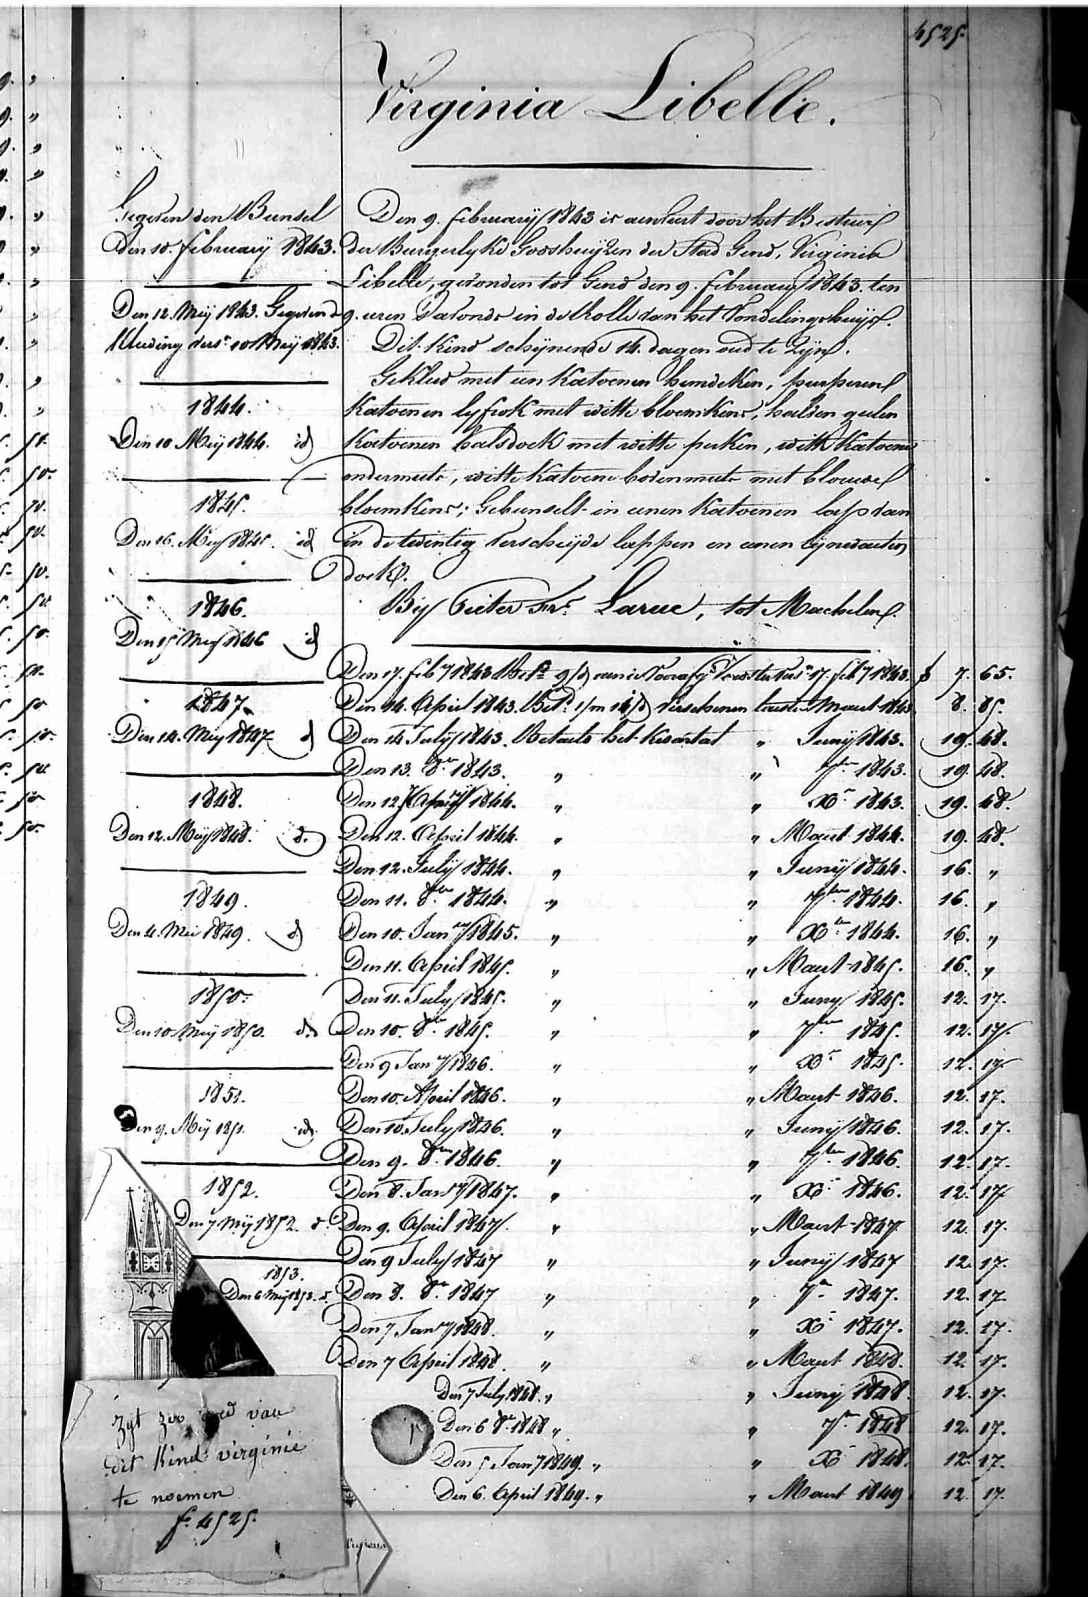 4525.
Virginia Libelle.
Gegeven den Bunsel
den 10. February 1843.
Den 12. Meij 1843. Gegeven d
Kleeding vers. 10 Meij 1843.
1844.
Den 10 Meij 1844. id
1845.
Den 16. Meij 1845. id
1846.
Den 15 Meij 1846 id
1847.
Den 14. Meij 1847 d
1848.
Den 12. Meij 1848. d.
1849.
Den 4. Mei 1849. d
1850.
Den 10 Meij 1850. d.
1851.
Den 9. Mij 1851. id.
1852.
Den 7. Mij 1852. d.
1853.
Den 6 Mij 1853. d.
Den 9. February 1843 is aenveert door het Bestier
der Burgerlyke Godshuijzen der Stad Gend, Virginia
Libelle, gevonden tot Gend den 9. February 1843. ten
9. uren s'avonds in de Rolle van het Vondelingshuijs.
Dit kind schijnende 14. dagen oud te zijn.
Gekleed met een katoenen hemdeken, purperen
katoenen lyfrok met witte bloemkens, halven geelen
katoenen halsdoek met witte perken, witte katoene
ondermuts, witte katoene bovenmuts met blouwe
bloemkens; Gebunselt in eenen katoenen lap van
in de twintig verscheijde lappen en eenen lijnwaeten
doek.
Bij Pieter Frs. Larue, tot Machelen.
Den 17. feb 1843 17. feb 1843. f 7. 65.
Den 14. April 1843. verschenen Maert 1843 8. 85.
Den 14 July 1843. Betaelt het kwartael " Junij 1843. 19. 48.
Den 13. 8re 1843. " " 7bre 1843. 19. 48.
Den 12 1844. " " Xr 1843. 19. 48.
Den 12. April 1844. " " Maert 1844. 19. 48.
Den 12. July 1844. " " Junij 1844. 16. "
Den 11. 8bre 1844. " " 7bre 1844. 16. "
Den 10. Jany 1845. " " Xbre 1844. 16. "
Den 11. April 1845. " Maert 1845. 16. "
Den 11. July 1845. " " Juny 1845. 12. 17.
Den 10. 8re 1845. " " 7bre 1845. 12. 17.
Den 9 Jany 1846. " " Xr 1845. 12. 17
Den 10. April 1846. " " Maert 1846. 12. 17.
Den 10. July 1846. " " Juny 1846. 12. 17.
Den 9. 8bre 1846. " " 7bre 1846. 12. 17.
Den 8. Jany 1847. " " Xr 1846. 12. 17
Den 9. April 1847. " " Maert 1847 12. 17.
Den 9 July 1847 " " Juny 1847 12. 17.
Den 8. 8re 1847 " " 7re 1847. 12. 17
Den 7 Jany 1848. " " Xr 1847. 12. 17.
Den 7 April 1848. " " Maert 1848. 12 17.
Den 7 July 1848. " " Junij 1848. 12. 17.
Den 6 8re 1848 " " 7re 1848 12. 17.
Den 5 Jany 1849. " " Xr 1848. 12. 17.
Den 6. April 1849. " " Maert 1849 12. 17.
Zyt zoo goed van
dit Kind virginie
te noemen
f. 4525.